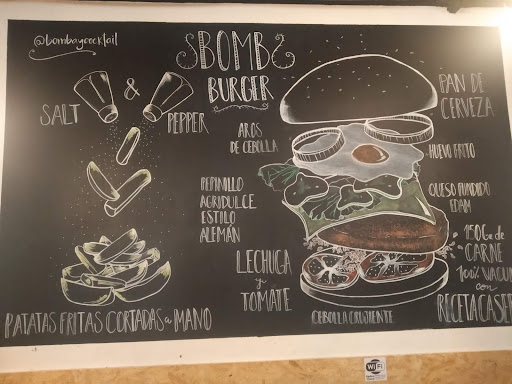 @bombaycocktail
SALT & PEPPER
PATATAS FRITAS CORTADAS a MANO
BOMB
BURGER
AROS
DE CEBOLLA
PEPINILLO
AGRIDULCE
ESTILO
ALEMÁN
LECHUGA
y
TOMATE
CEBOLLA CRUJIENTE
PAN DE
CERVEZA
HUEVO FRITO
QUESO FUNDIDO
EDAM
150G de
CARNE
100%
con
WiFi